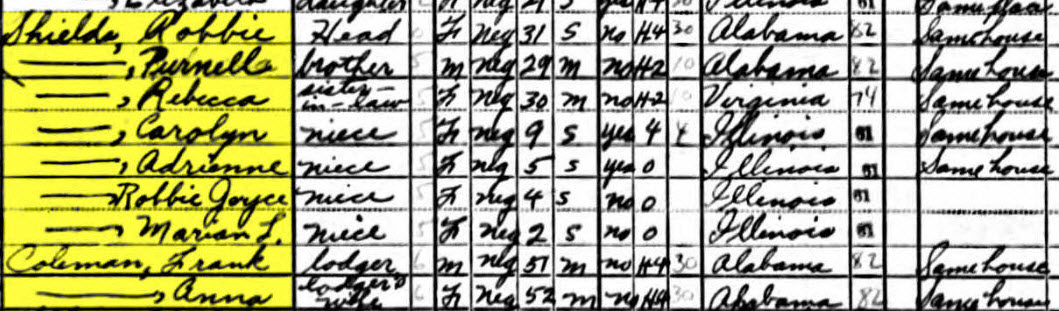 daughter F neg 21 S yes H4 30 Illinois 81 Same place
Shields, Robbie Head 0 F Neg 31 S no H4 30 Alabama 82 Same house
—, Purnell brother 5 m neg 29 m no H2 10 Alabama 82 Same house
—, Rebecca sister-in-law 5 F Neg 30 m no H2 10 Virginia 74 Same house
—, Carolyn niece 5 F neg 9 S yes 4 4 Illinois 81 Same house
—, Adrienne niece 5 F neg 5 S yes 0 Illinois 81 Same house
— Robbie Joyce niece 5 F neg 4 S no 0 Illinois 81
—, Marian L. niece 5 F Neg 2 S no 0 Illinois 81
Coleman, Frank lodger 6 m neg 51 m no H4 30 Alabama 82 Same house
—, Anna lodger's wife 6 F Neg 52 m no H4 30 Alabama 82 Same house